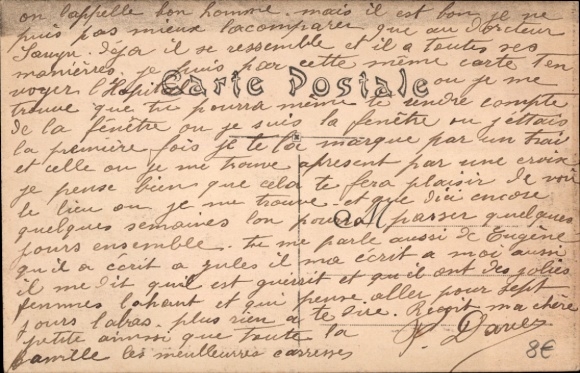 on lappelle bon homme. mais il est bon je ne
puis pas mieux lacomparer que au Docteur
deja il se ressemble et il a toutes ses
manières je puis par cette même carte t'en
voyer l'Hopital ou je me
Carte Postale
trouve que tu pourra même te rendre compte
de la fenêtre ou je suis la fenêtre ou j'ettais
la première fois je te la marque par un trai
et celle ou je me trouve apresent par une croix
je pense bien que cela te fera plaisir de voir
le lieu ou je me trouve. et que dici encore
quelques semaines lon pourra passer quelques
jours ensemble. tu me parle aussi de Eugène
qu'il a écrit a Jules il ma écrit a moi aussi
il me dit quil est guérrit et qu'il ont des jolies
femmes lahaut et qui pense aller pour sept
jours labas. plus rien a te dire. Reçoit ma chère
petite ainssi que toute la
famille les meilleurres carresses
8€